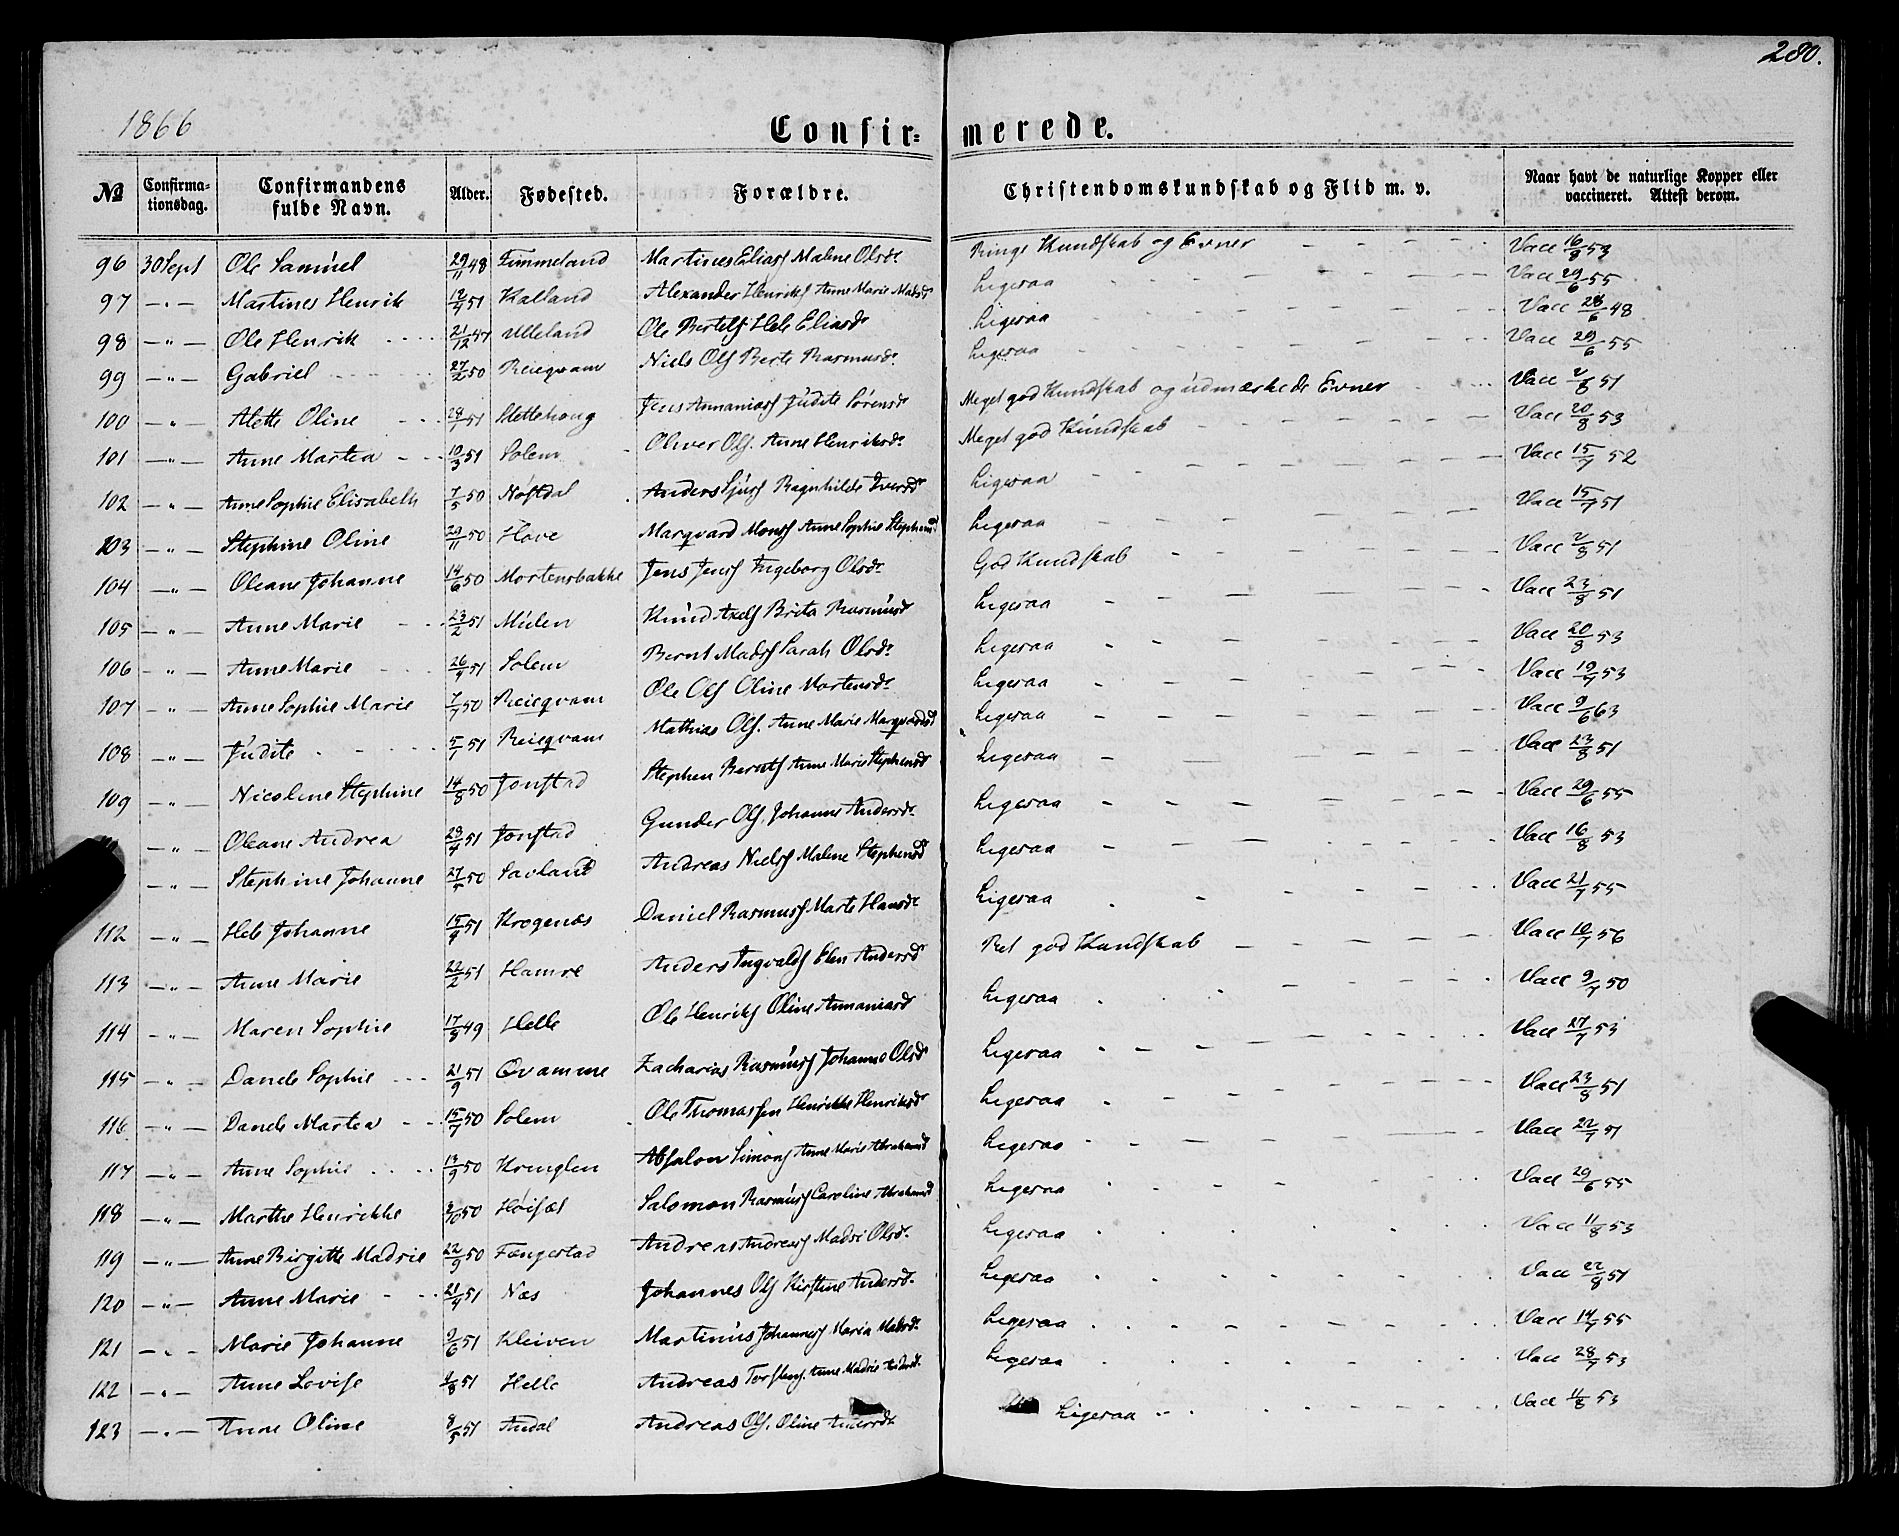 280.
1866
Confirmerede.
№ Confirmationsdag. Confirmandens fulde Navn. Alder. Fødested. Forældre. Christendomskundskab og Flid m. v. Naar havt de naturlige Kopper eller vaccineret. Attest derom.
96 30 Sept Ole Samuel 29/11 48 Fimmeland Martines Eliass Malene Olsdr Ringe Kundskab og Evner - - - - Vacc 16/8 53
97 —"— Martines Henrik 12/9 51 Kalland Alexander Henriks Anne Marie Madsd Ligesaa - - - - Vacc 29/6 55
98 —"— Ole Henrik 21/12 47 Ulleland Ole Bertels Hele Eliasdr Ligesaa - - - - Vacc 28/6 48
99 —"— Gabriel 27/2 50 Reieqvam Niels Ols Berte Rasmusdr Ligesaa - - - - Vacc 29/6 55
100 —"— Alette Oline 28/1 51 Slettehoug Jens Annanias Judite Sørensdr Meget god Kundskab og udmærkede Evner - - - Vacc 2/8 51
101 —"— Anne Martea 10/3 51 Solem Oliver Ols. Anne Henriksdr Meget god Kundskab - - - - Vacc 20/8 53
102 —"— Anne Sophie Elisabeth 7/5 50 Nøstdal Anders Sjurs Ragnhilde Iversdr Ligesaa - - - - Vacc 15/7 52
103 —"— Stephine Oline 29/11 50 Hove Marqvard Mons Anne Sophie Stephensd Ligesaa - - - - Vacc 15/7 51
104 —"— Oleane Johanne 14/6 50 Mortensbakke Jens Jens Ingeborg Olsdr God Kundskab - - - - Vacc 2/8 51
105 —"— Anne Marie 23/2 51 Mulen Knud Axels Brita Rasmusd Ligesaa - - - - Vacc 23/8 51
106 —"— Anne Marie 26/4 51 Solem Bernt Mads Sarah Olsdr Ligesaa - - - - Vacc 20/8 53
107 —"— Anne Sophie Marie 7/7 50 Reieqvam Ole Ols Oline Mortensdr Ligesaa - - - - Vacc 19/7 53
108 —"— Judite 5/7 51 Reieqvam Mathias Ols. Anne Marie Marqvardsd Ligesaa - - - - Vacc 9/6 63
109 —"— Nicoline Stephine 14/8 50 Jonstad Stephen Bernts Anne Marie Stephensd Ligesaa - - - - Vacc 23/8 51
—"— Oleane Andrea 23/4 51 Jonstad Gunder Ols. Johanne Andersdr Ligesaa - - - - Vacc 29/6 55
—"— Stephine Johanne 27/5 50 Savland Andreas Niels Malene Stephensd Ligesaa - - - - Vacc 16/8 53
112 —"— Hele Johanne 15/4 51 Krogenæs Daniel Rasmus Marte Hansdr Ligesaa - - - - Vacc 21/7 55
113 —"— Anne Marie 22/2 51 Hamre Anders Ingvalds Elen Andersd Ret god Kundskab - - - - Vacc 10/7 56
114 —"— Maren Sophie 17/3 49 Helle Ole Henriks Oline Annaniasd Ligesaa - - - - Vacc 9/7 50
115 —"— Danele Sophie 21/9 51 Qvamme Zacharias Rasmus Johanne Olsdr Ligesaa - - - - Vacc 27/7 53
116 —"— Danele Martea 15/7 50 Solem Ole Thomassen Henrikke Henriksd Ligesaa - - - - Vacc 23/8 51
117 —"— Anne Sophie 13/9 50 Kringlen Absalon Simons Anne Marie Abrahamsd Ligesaa - - - - Vacc 22/7 51
118 —"— Marthe Henrikke 2/10 50 Høisæt Salomon Rasmus Caroline Abrahamsd Ligesaa - - - - Vacc 29/6 55
119 —"— Anne Birgitte Madsie 22/9 50 Fængestad Andreas Andreas Madsi Olsdr Ligesaa - - - - Vacc 11/8 53
120 —"— Anne Marie 21/4 51 Næs Johannes Ols Kirstine Andersdr Ligesaa - - - - Vacc 22/8 51
121 —"— Marie Johanne 9/6 51 Kleiven Martinus Johannes Maria Madsdr Ligesaa - - - - Vacc 14/7 55
122 —"— Anne Lovise 1/8 51 Helle Andreas Torstens. Anne Madsie Andersdr Ligesaa - - - - Vacc 28/7 53
123 —"— Anne Oline 8/5 51 Andal Andreas Ols. Oline Andersdr Ligesaa - - - - Vacc 11/8 53